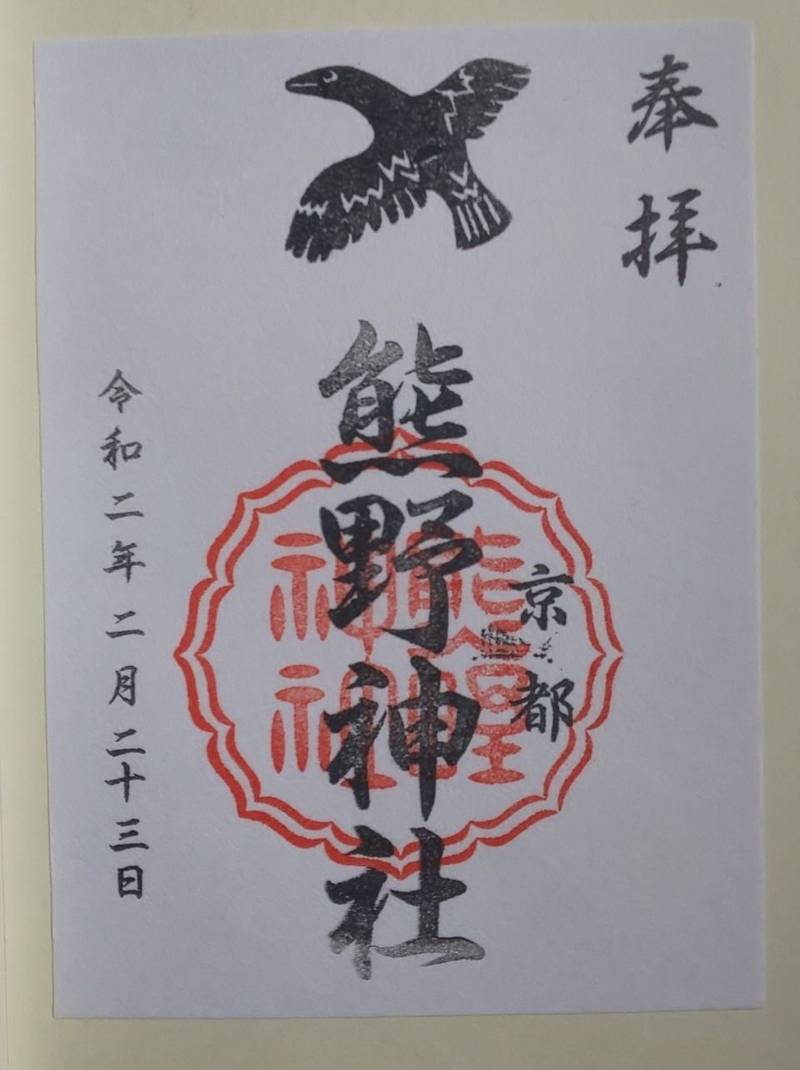 奉拝
京都
熊野神社
熊野
神社
令和二年二月二十三日